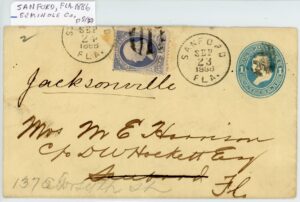 SANFORD, FLA 1886
SEMINOLE CO.
SEP
24
1886
FLA.
SANFORD
SEP
23
1886
FLA.
Jacksonville
Mrs M E Harrison
c/o D W Hockett Esq
Sanford
Fla.
137 E Forsyth St